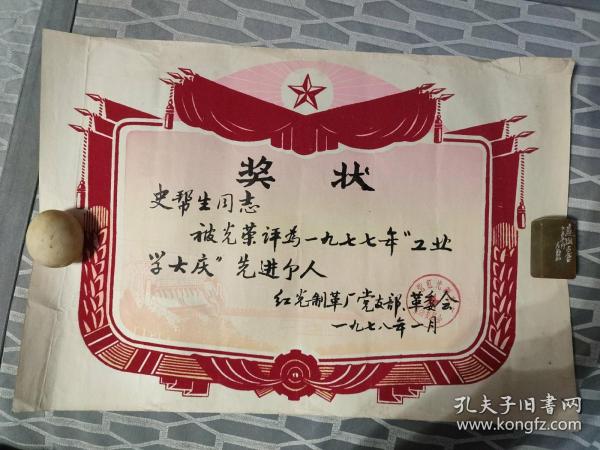 奖状
史帮生同志
被光荣评为一九七七年“工业
学大庆”先进个人
红光制革厂党支部、革委会
一九七八年一月
孔夫子旧书网
www.kongfz.com